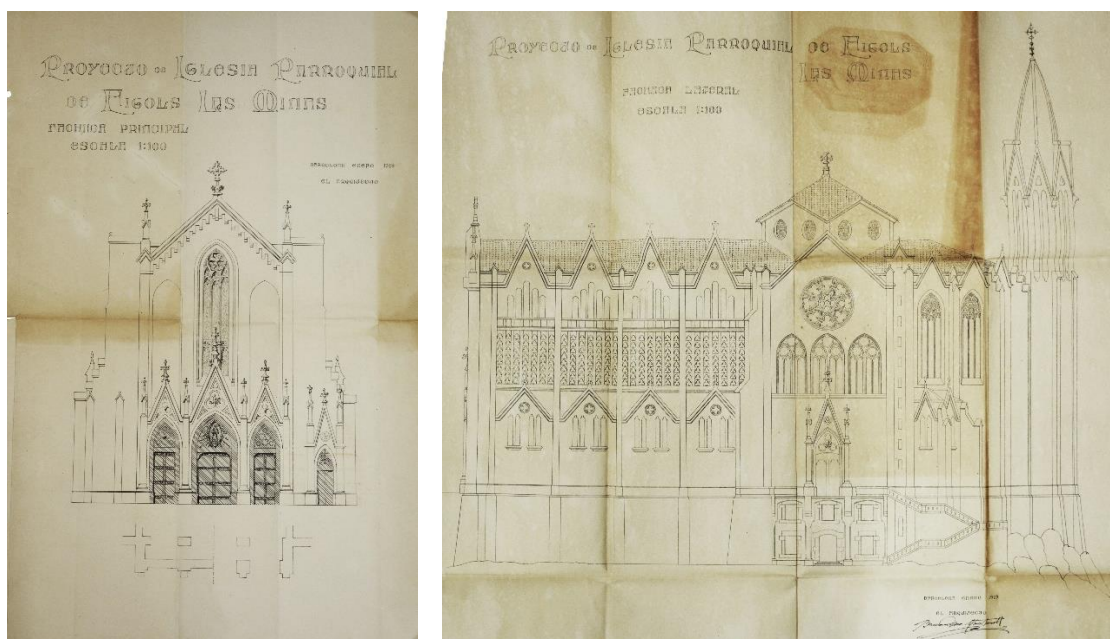 PROYECTO DE IGLESIA PARROQUIAL
DE FIGOLS LAS MINAS
FACHADA PRINCIPAL
ESCALA 1:100
BARCELONA ENERO
EL ARQUITECTO
PROYECTO DE IGLESIA PARROQUIAL DE FIGOLS
LAS MINAS
FACHADA LATERAL
ESCALA 1:100
BARCELONA ENERO
EL ARQUITECTO